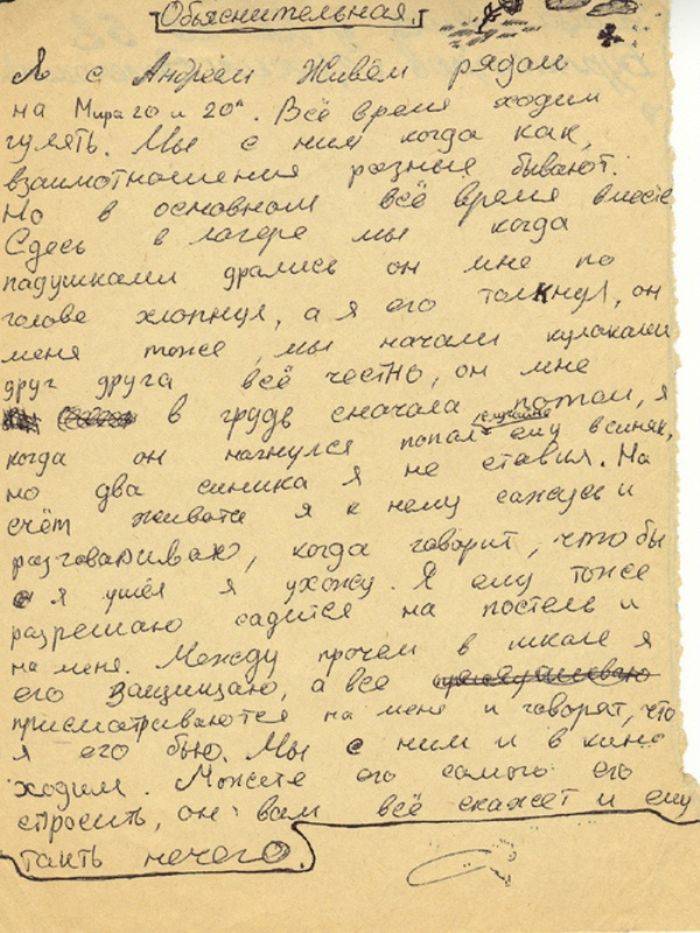 Объяснительная.
Я с Андреем живём рядом
на Мира 20 и 20а. Всё время ходим
гулять. Мы с ним когда как,
взаимотношения разные бывают.
Но в основном всё время вместе
Сдесь в лагере мы когда
падушками дрались он мне по
голове хлопнул, а я его толкнул, он
меня тоже, мы начали кулаками
друг друга всё честно, он мне
в грудь сначала потом, я
когда он нагнулся попал случайно ему в синяк,
но два синика я не ставил. На
счёт живота я к нему сажусь и
разговариваю, когда говорит, что бы
я ушёл я ухожу. Я ему тоже
разрешаю садится на постель и
на меня. Между прочем в школе я
его защищаю, а все
присматриваются на меня и говорят, что
я его бью. Мы с ним и в кино
ходим. Можете его самого его
спросить, он вам всё скажет и ему
таить нечего.